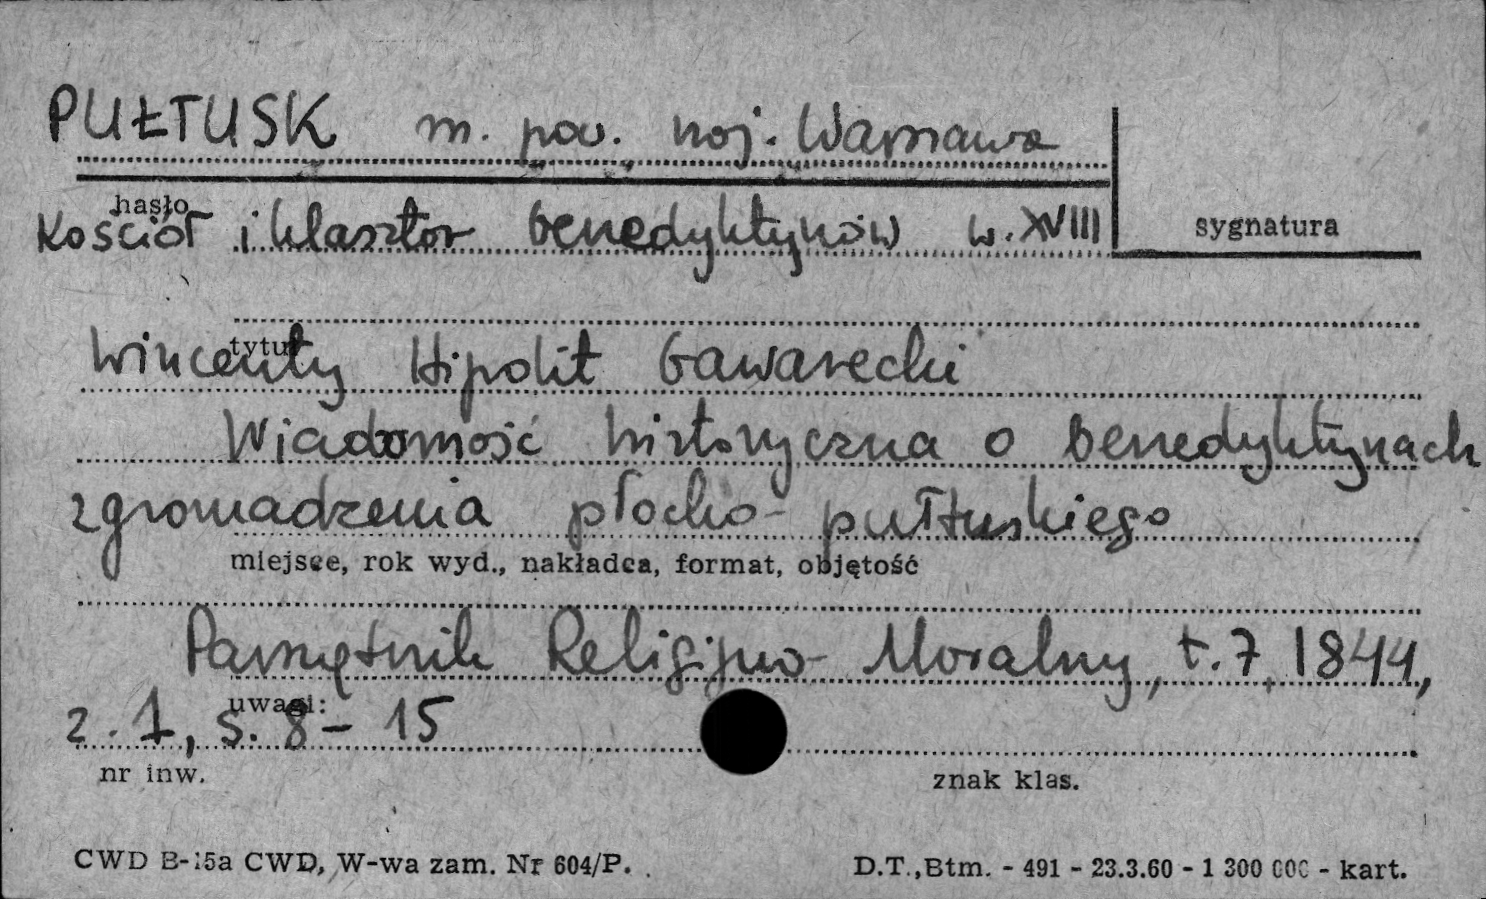 PUŁTUSK m. pow. woj. Warszawa
hasło
Kościół i klasztor benedyktynów w. XVIII
sygnatura
tytuł
Wincenty Hipolit Gawarecki
Wiadomość historyczna o benedyktynach
zgromadzenia płocko-pułtuskiego
miejsce, rok wyd., nakładca, format, objętość
Pamiętnik Religijno-Moralny, t. 7, 1844,
uwagi:
z. 1, s. 8-15
nr inw.
znak klas.
CWD B-15a CWD, W-wa zam. Nr 604/P.
D.T.,Btm. - 491 - 23.3.60 - 1 300 000 - kart.